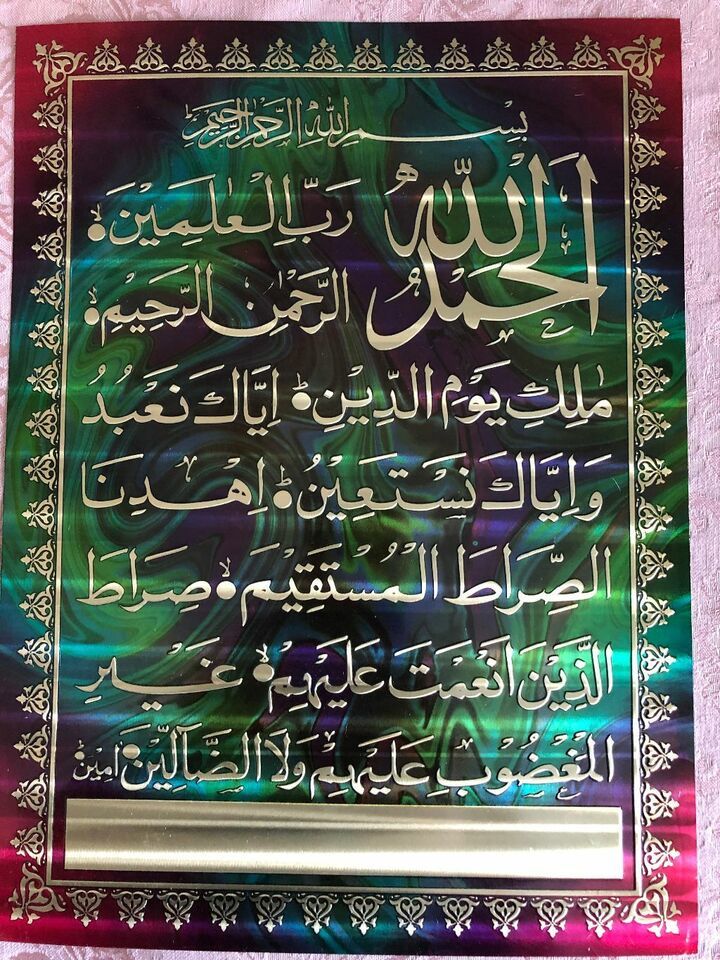 بِسْمِ اللهِ الرَّحْمٰنِ الرَّحِيْمِ
اَلْحَمْدُ لِلّٰهِ رَبِّ الْعٰلَمِيْنَ ۙ
الرَّحْمٰنِ الرَّحِيْمِ ۙ
مٰلِكِ يَوْمِ الدِّيْنِ ؕ اِيَّاكَ نَعْبُدُ
وَاِيَّاكَ نَسْتَعِيْنُ ؕ اِهْدِنَا
الصِّرَاطَ الْمُسْتَقِيْمَ ۙ صِرَاطَ
الَّذِيْنَ اَنْعَمْتَ عَلَيْهِمْ ۙ غَيْرِ
الْمَغْضُوْبِ عَلَيْهِمْ وَلَا الضَّآلِّيْنَ اٰمِيْن